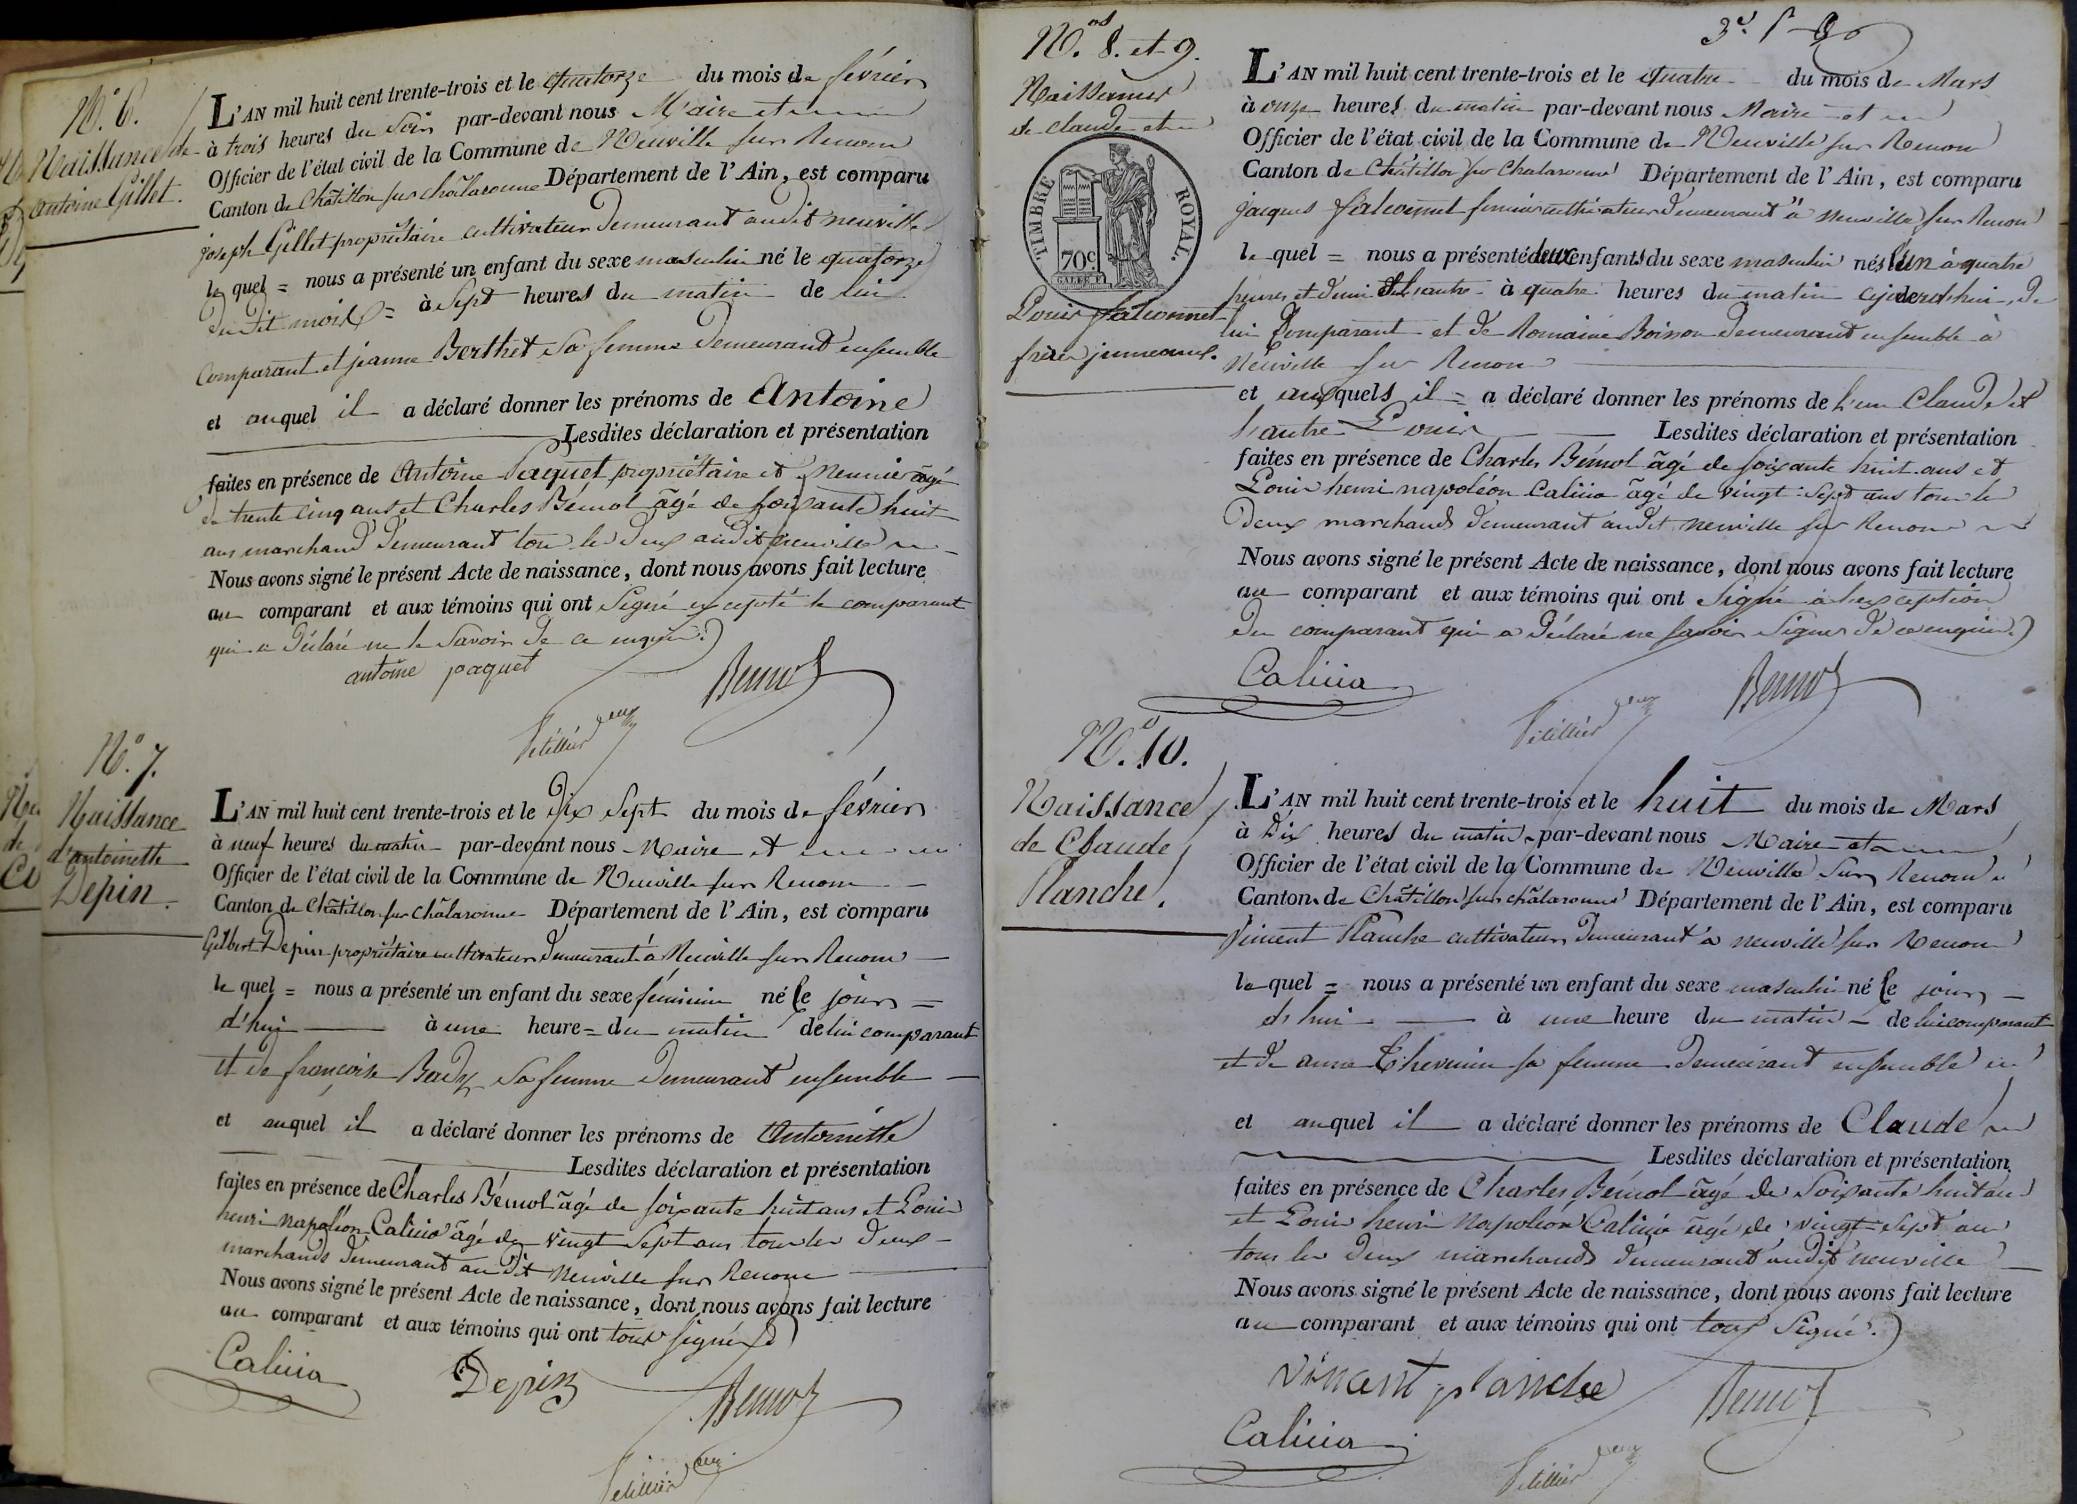 N.º 6.
Naissance de
Antoine Gillet.
L'AN mil huit cent trente-trois et le quatorze du mois de février
à trois heures du soir par-devant nous Maire et
Officier de l'état civil de la Commune de Neuville sur Renom
Canton de Châtillon sur Châlaronne Département de l'Ain, est comparu
joseph Gillet propriétaire cultivateur demeurant audit neuville
le quel = nous a présenté un enfant du sexe masculin né le quatorze
du dit mois = à Sept heures du matin de lui
Comparant et jeanne Berthet sa femme demeurant ensemble
et auquel il a déclaré donner les prénoms de Antoine
Lesdites déclaration et présentation
faites en présence de Antoine Paquet propriétaire et Meunier âgé
de trente cinq ans et Charles Bémol âgé de soixante huit
ans marchand demeurant tou les deux audit neuville
Nous avons signé le présent Acte de naissance, dont nous avons fait lecture
au comparant et aux témoins qui ont Signé excepté le comparant
qui a déclaré ne le Savoir de ce enquis.
antoine paquet Bemol
N.º 7.
Naissance
d'antoinette
Depin.
L'AN mil huit cent trente-trois et le dix Sept du mois de février
à neuf heures du matin par-devant nous Maire et
Officier de l'état civil de la Commune de Neuville sur Renom
Canton de Châtillon sur Châlaronne Département de l'Ain, est comparu
Gilbert Depin propriétaire cultivateur demeurant à Neuville sur Renom
le quel = nous a présenté un enfant du sexe féminin né le jour =
d'hui à une heure = du matin de lui comparant
et de françoise Bady sa femme demeurant ensemble
et auquel il a déclaré donner les prénoms de Antoinette
Lesdites déclaration et présentation
faites en présence de Charles Bémol âgé de soixante huit ans et Louis
henri napoléon Calicia âgé de vingt Sept ans tou les deux
marchands demeurant au dit Neuville sur Renom
Nous avons signé le présent Acte de naissance, dont nous avons fait lecture
au comparant et aux témoins qui ont tous signé
Calicia Depin Bemol
N.os 8. et 9.
Naissances
de claude et
TIMBRE ROYAL.
70 c.
Louis falconnet
frères jumeaux.
L'AN mil huit cent trente-trois et le quatre du mois de Mars
à onze heures du matin par-devant nous Maire et
Officier de l'état civil de la Commune de Neuville sur Renom
Canton de Châtillon sur Chalaronne Département de l'Ain, est comparu
jacques falconnet fermier cultivateur demeurant à neuville sur Renom
le quel = nous a présenté deux enfants du sexe masculin nés l'un à quatre
heures et demi et l'autre à quatre heures du matin cejourd'hui, de
lui Comparant et de Romaine Boisson demeurant ensemble à
Neuville sur Renom
et auxquels il = a déclaré donner les prénoms de l'un Claude et
l'autre Louis Lesdites déclaration et présentation
faites en présence de Charles Bémol âgé de soixante huit ans et
Louis henri napoléon Calicia âgé de vingt Sept ans tou le
deux marchands demeurant audit neuville sur Renom
Nous avons signé le présent Acte de naissance, dont nous avons fait lecture
au comparant et aux témoins qui ont Signé à l'exception
du comparant qui a déclaré ne savoir Signer de ce enquis.
Calicia Bemol
N.º 10.
Naissance
de Claude
Planche.
L'AN mil huit cent trente-trois et le huit du mois de Mars
à dix heures du matin par-devant nous Maire et
Officier de l'état civil de la Commune de Neuville Sur Renom
Canton de Châtillon sur châlaronne Département de l'Ain, est comparu
Vincent Planche cultivateur demeurant à neuville sur Renom
le quel = nous a présenté un enfant du sexe masculin né le jour
d'hui à une heure du matin de lui comparant
et de anne Thevenin sa femme demeurant ensemble
et auquel il a déclaré donner les prénoms de Claude
Lesdites déclaration et présentation
faites en présence de Charles Bémol âgé de Soixante huit ans
et Louis henri Napoléon Calicia âgé de vingt Sept ans
tous les deux marchands demeurant audit neuville
Nous avons signé le présent Acte de naissance, dont nous avons fait lecture
au comparant et aux témoins qui ont tous Signé.
Vincent planche Bemol
Calicia